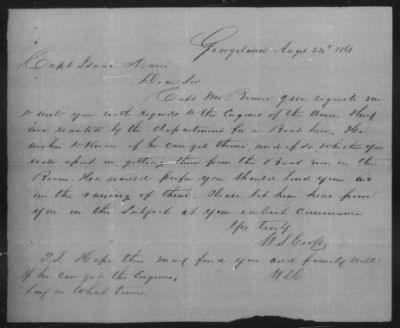 Georgetown Augst 22d 186
Capt Isaac
Dear Sir
Capt Mc requests me
to write you with regards to the Engines of the
wanted by the department for a Boat here. He
wishes to know if he can get them, and if so whether you
will in getting them from the Boat now in the
River. He would prefer you should lend your
in the raising of them. Please let him hear from
you on the Subject at your earliest Convenience
Yrs Truly
W. L.
P.S. Hope this may find you and family well
If he can get the Engines,
say in what time.
W L C